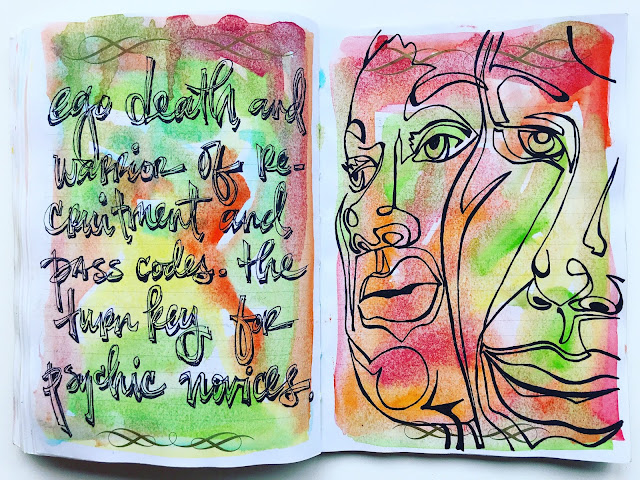 ego death and
warrior of re-
cruitment and
pass codes. the
turn key for
psychic novices.